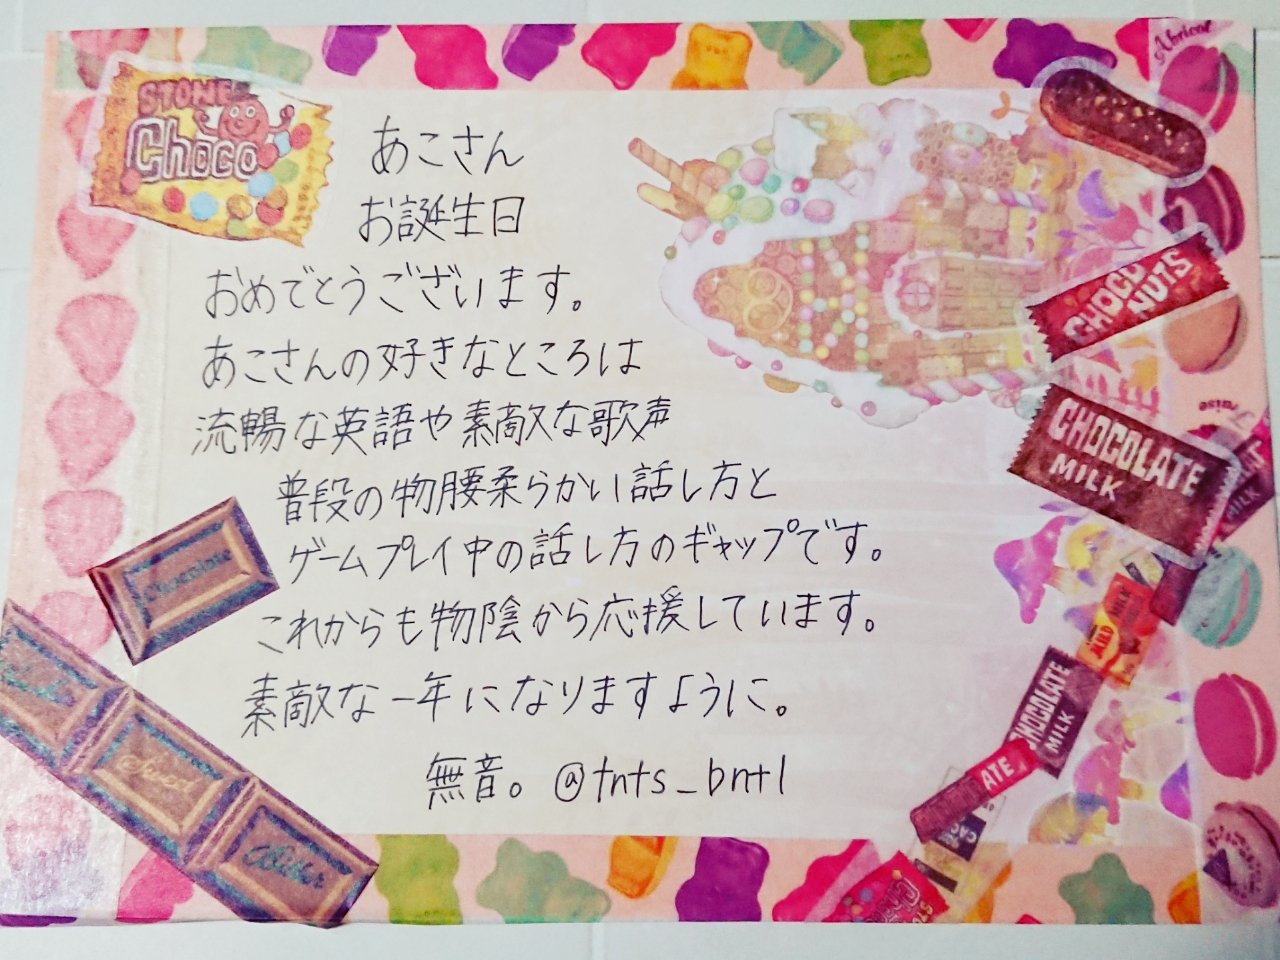 STONE
Choco
あこさん
お誕生日
おめでとうございます。
あこさんの好きなところは
流暢な英語や素敵な歌声
普段の物腰柔らかい話し方と
ゲームプレイ中の話し方のギャップです。
これからも物陰から応援しています。
素敵な一年になりますように。
無音。@tnts_bntl
Abricot
CHOCO
NUTS
CHOCOLATE
MILK
MILK
MILK
CHOCOLATE
MILK
Chocolate